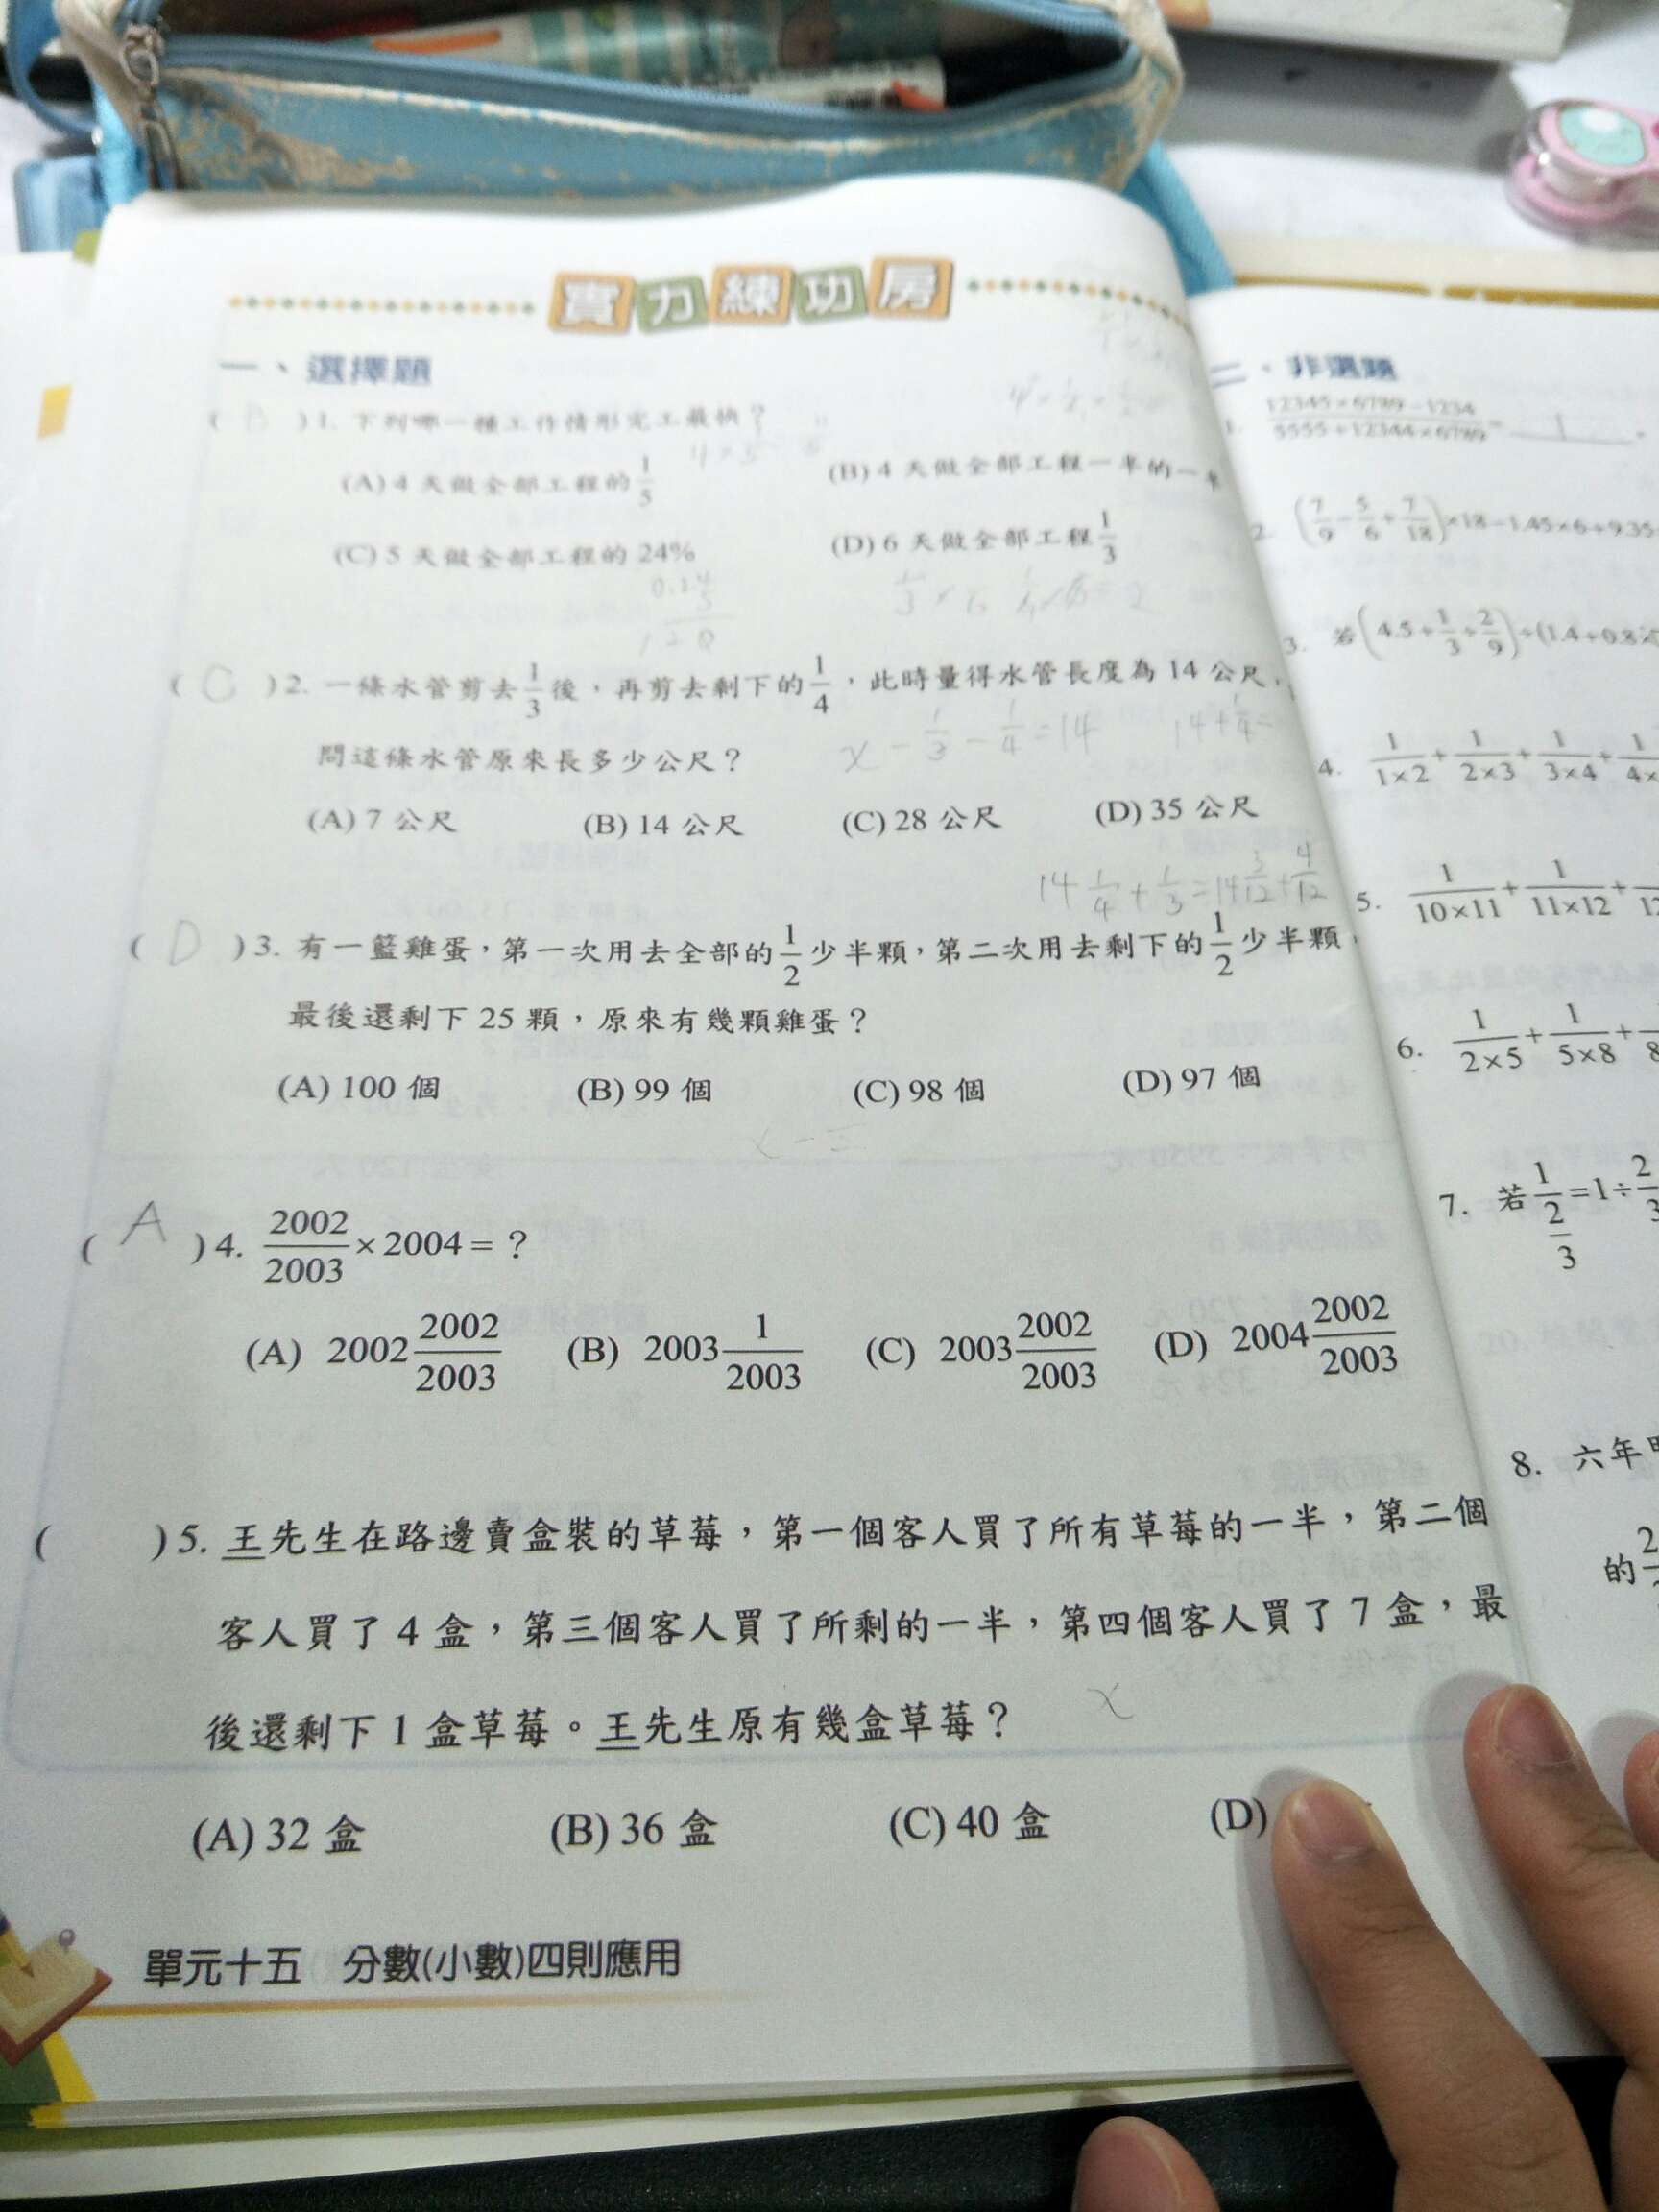 實力練功房
一、選擇題
( B )1. 下列哪一種工作情形完工最快？
(A) 4 天做全部工程的 1/5
(B) 4 天做全部工程一半的一半
(C) 5 天做全部工程的 24%
(D) 6 天做全部工程 1/3
( C )2. 一條水管剪去 1/3 後，再剪去剩下的 1/4，此時量得水管長度為 14 公尺，
x - 1/3 - 1/4 = 14
問這條水管原來長多少公尺？
(A) 7 公尺 (B) 14 公尺 (C) 28 公尺 (D) 35 公尺
14 1/4 + 1/3 = 14 3/12 + 4/12
( D )3. 有一籃雞蛋，第一次用去全部的 1/2 少半顆，第二次用去剩下的 1/2 少半顆，
最後還剩下 25 顆，原來有幾顆雞蛋？
(A) 100 個 (B) 99 個 (C) 98 個 (D) 97 個
( A )4. 2002/2003 × 2004 = ？
(A) 2002 2002/2003 (B) 2003 1/2003 (C) 2003 2002/2003 (D) 2004 2002/2003
( )5. 王先生在路邊賣盒裝的草莓，第一個客人買了所有草莓的一半，第二個
客人買了 4 盒，第三個客人買了所剩的一半，第四個客人買了 7 盒，最
後還剩下 1 盒草莓。王先生原有幾盒草莓？
x
(A) 32 盒 (B) 36 盒 (C) 40 盒 (D)
單元十五 分數(小數)四則應用
二、非選題
1. 12345×6789-1234 / 5555+12344×6789 = 1 。
2. (7/9 - 5/6 + 7/18)×18-1.45×6+9.35
3. 若(4.5+1/3÷2/9)÷(1.4+0.8×
4. 1/1×2 + 1/2×3 + 1/3×4 + 1/4×
5. 1/10×11 + 1/11×12 +
6. 1/2×5 + 1/5×8 +
7. 若 1/(2/3) = 1÷2/3
8. 六年
的